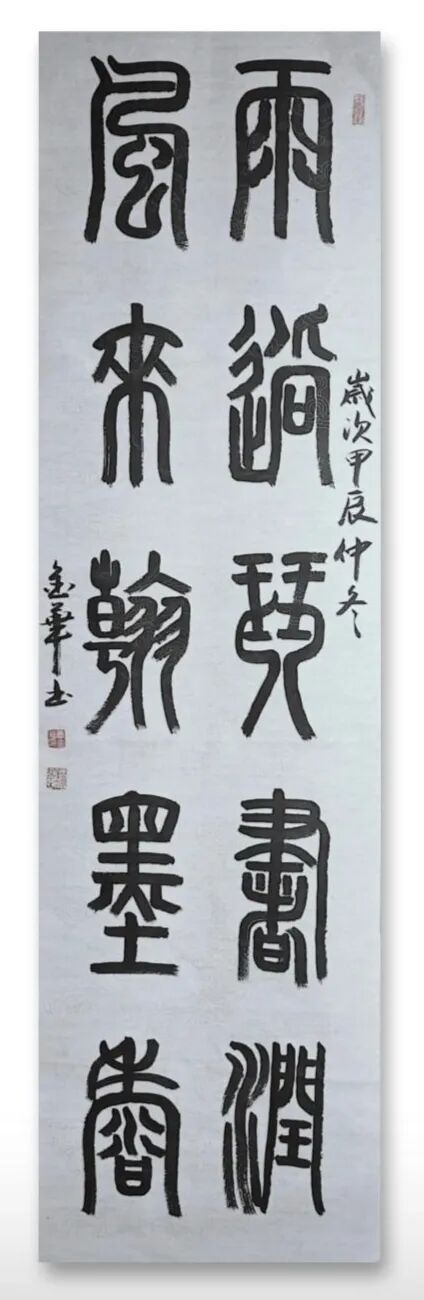 雨過琴書潤
風來翰墨香
歲次甲辰仲冬
金華書